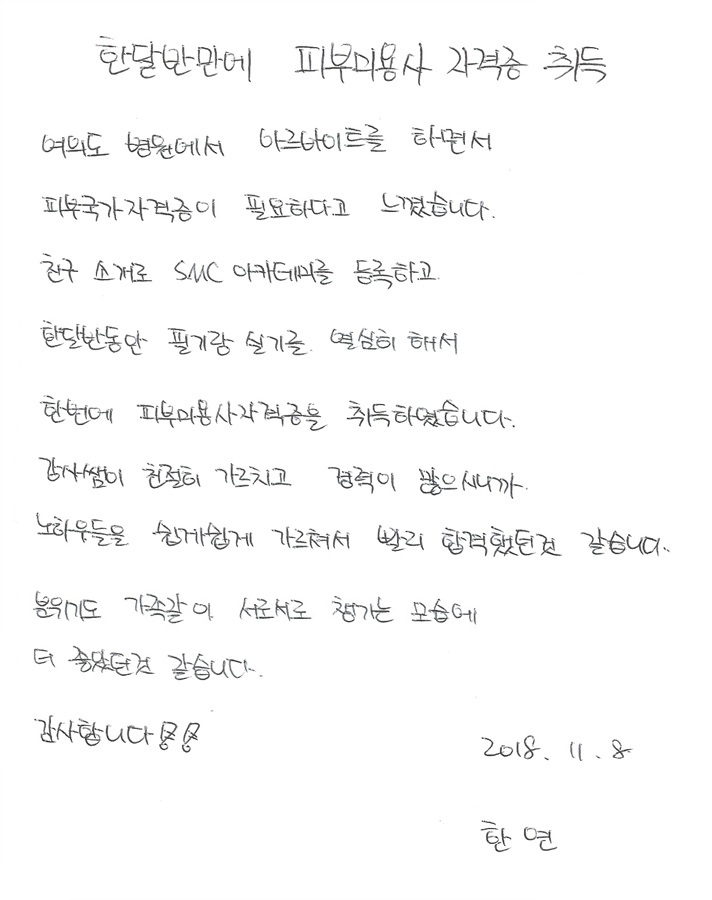 한달반만에 피부미용사 자격증 취득
여의도 병원에서 아르바이트를 하면서
피부국가자격증이 필요하다고 느꼈습니다.
친구 소개로 SMC 아카데미를 등록하고
한달반동안 필기랑 실기를 열심히 해서
한번에 피부미용사자격증을 취득하였습니다.
강사쌤이 친절히 가르치고 경력이 많으시니까
노하우들을 쉽게쉽게 가르쳐서 빨리 합격했던것 같습니다.
분위기도 가족같이 서로서로 챙기는 모습에
더 좋았던것 같습니다.
감사합니다
2018. 11. 8
한 연